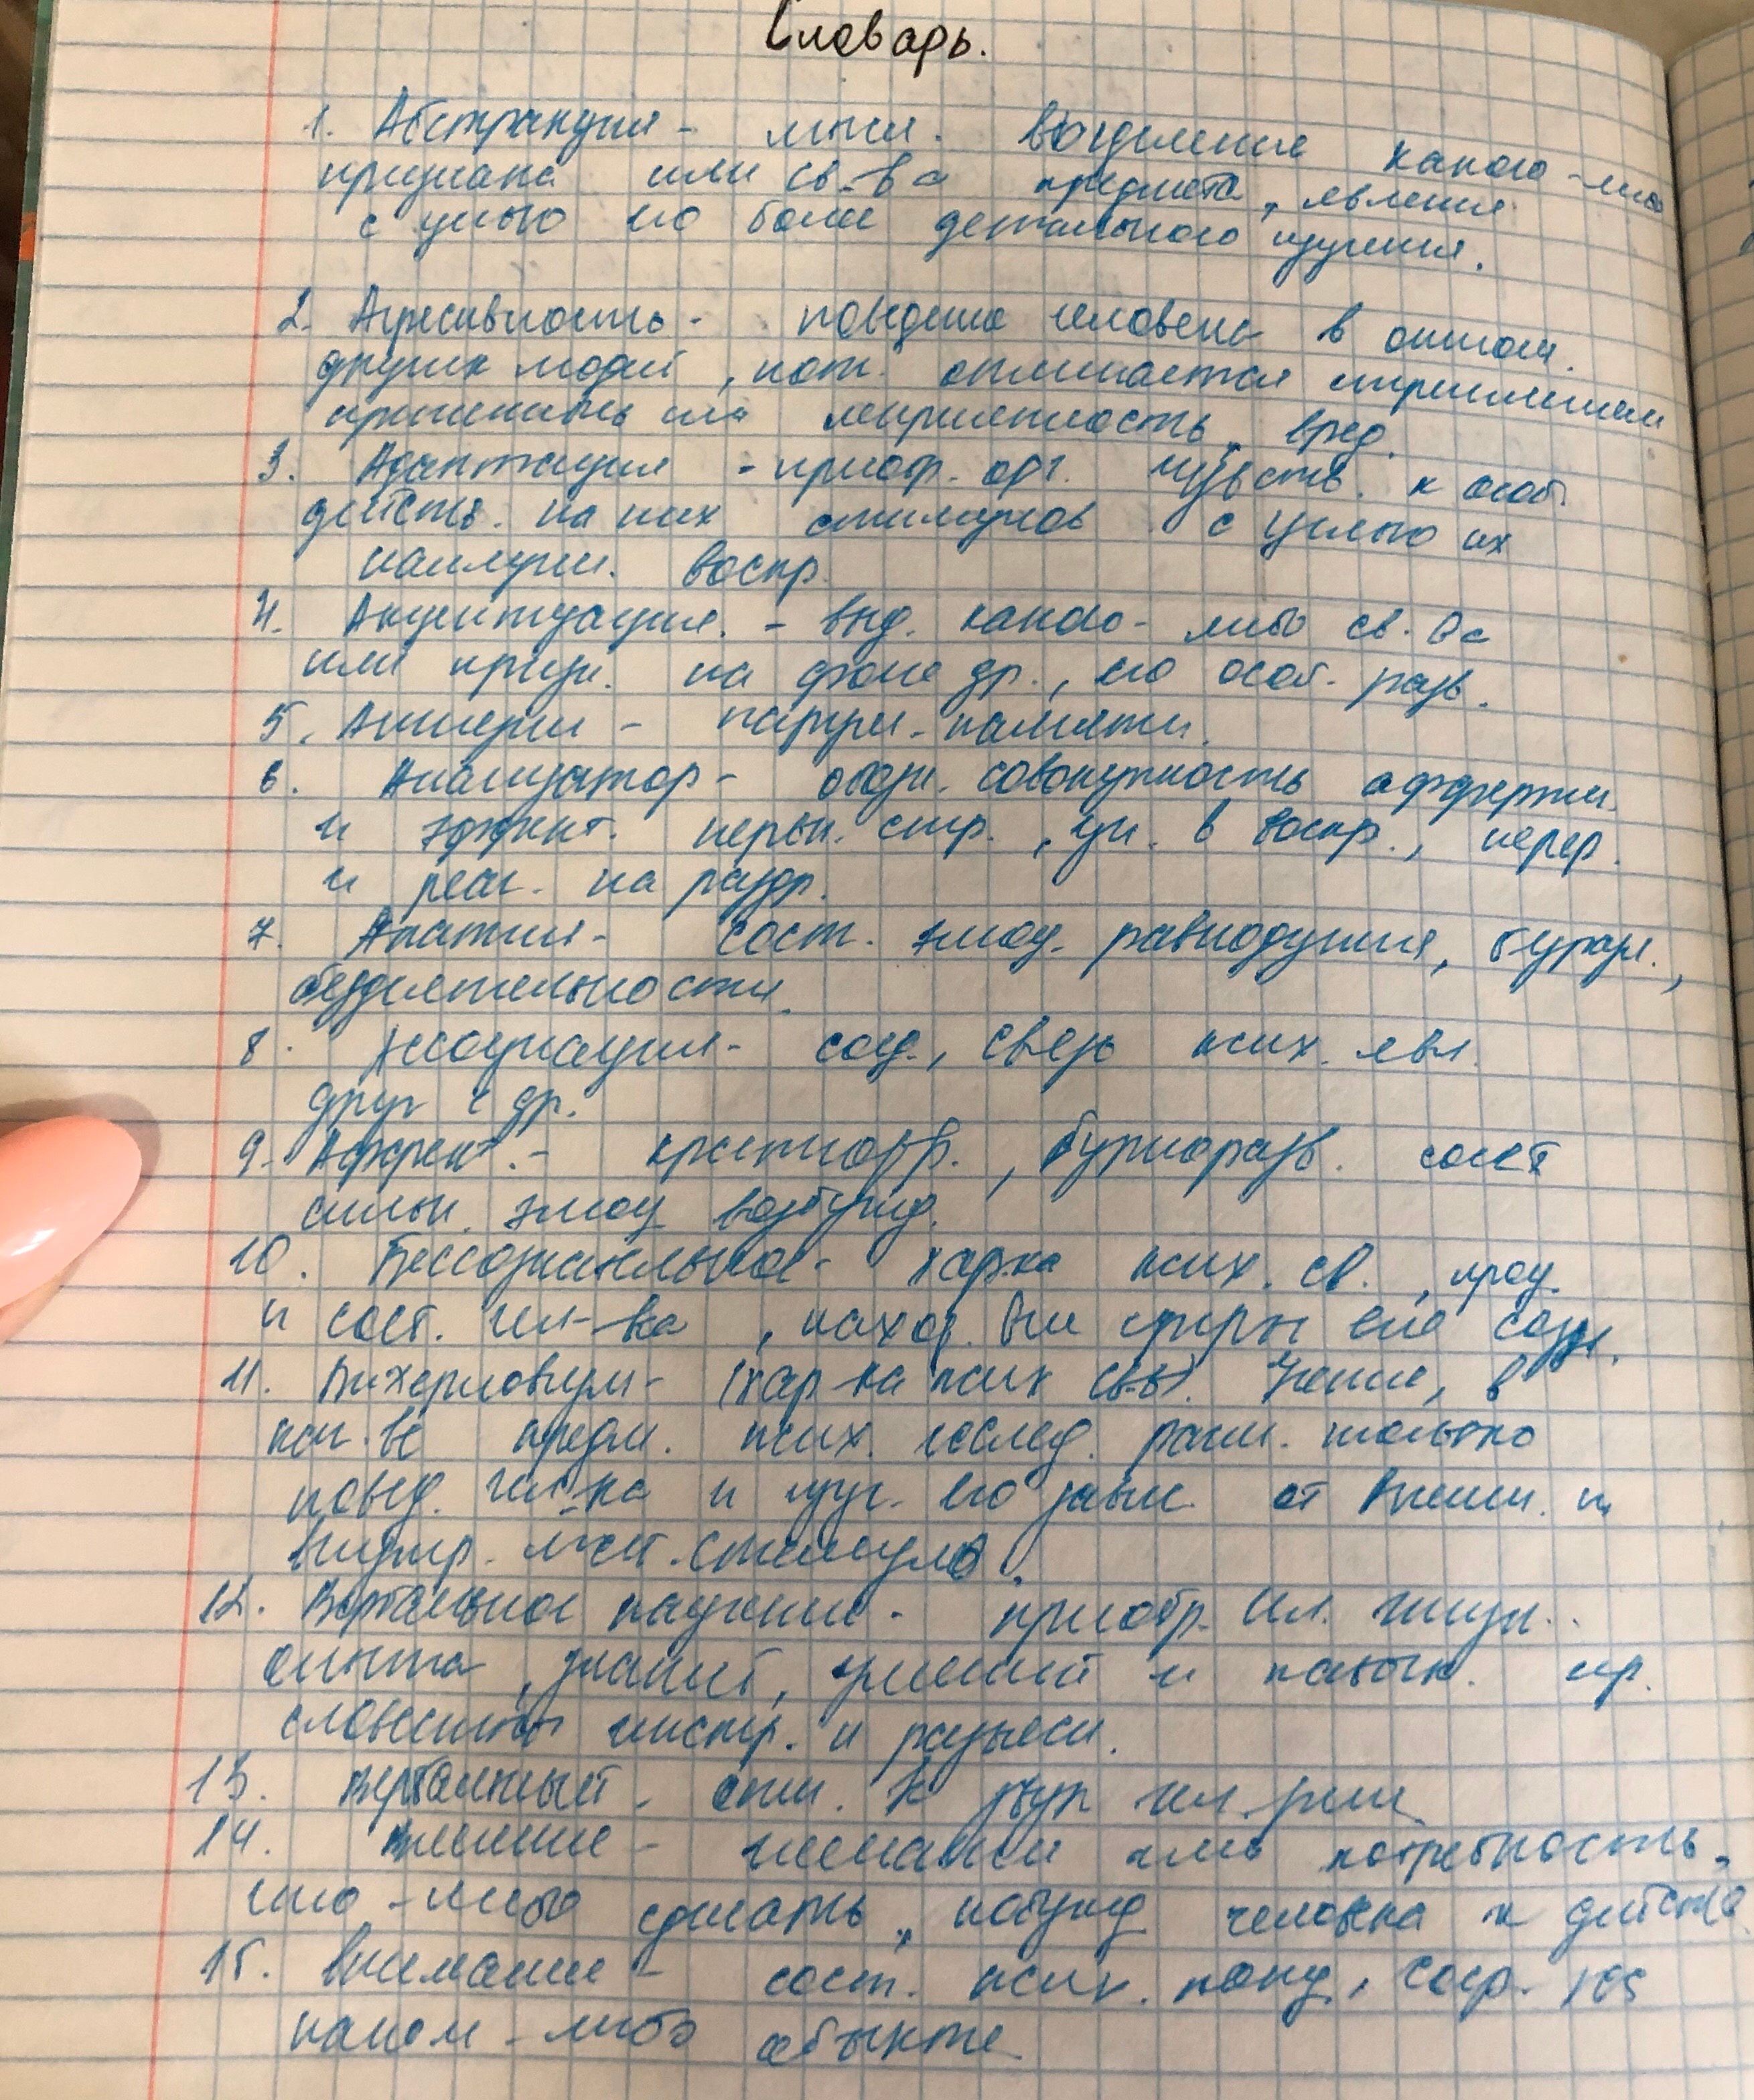 Словарь.
1. Абстракция - мысл. выделение какого-либо
признака или св-ва предмета, явления
с целью его более детального изучения.
2. Агресивность - поведение человека в отнош.
других людей, кот. отличается стремлением
причинить им неприятность, вред.
3. Адаптация - приспр. орг. чувств. к особ.
действ. на них стимулов с целью их
наилучш. воспр.
4. Акцентуация. - выд. какого-либо св.-ва
или призн. на фоне др., его особ. разв.
5. Амнезии - наруш. памяти.
6. Анализатор - совокупность афферентн.
и эффект. нервн. стр., уч. в воспр., перер.
и реаг. на раздр.
7. Апатия - сост. эмоц. равнодушия, безразл.,
бездеятельности.
8. Ассоциация - соед., связь псих. явл.
друг с др.
9. Аффект. - кратковр., бурноразв. сост
сильн. эмоц возбужд.
10. Бессознательное - хар-ка псих. св., проц.
и сост. чел-ка, наход. вне сферы его созн.
11. Бихевиоризм - (хар-ка псих св-в). Учение, в
кот-ве предм. псих. исслед. рассм. только
повед. чел-ка и изуч. его завис. от внешн. и
внутр. мат. стимулов.
12. Вербальное научение - приобр. чел. жизн.
опыта, знаний, умений и навык. пр.
словесный инстр. и разъясн.
13. Вербальный - отн. к звук чел. речи
14. Влечение - желание или потребность,
что-либо сделать, побужд человека к действ
15. Внимание - сост. псих. конц, соср. на
каком-либо объекте